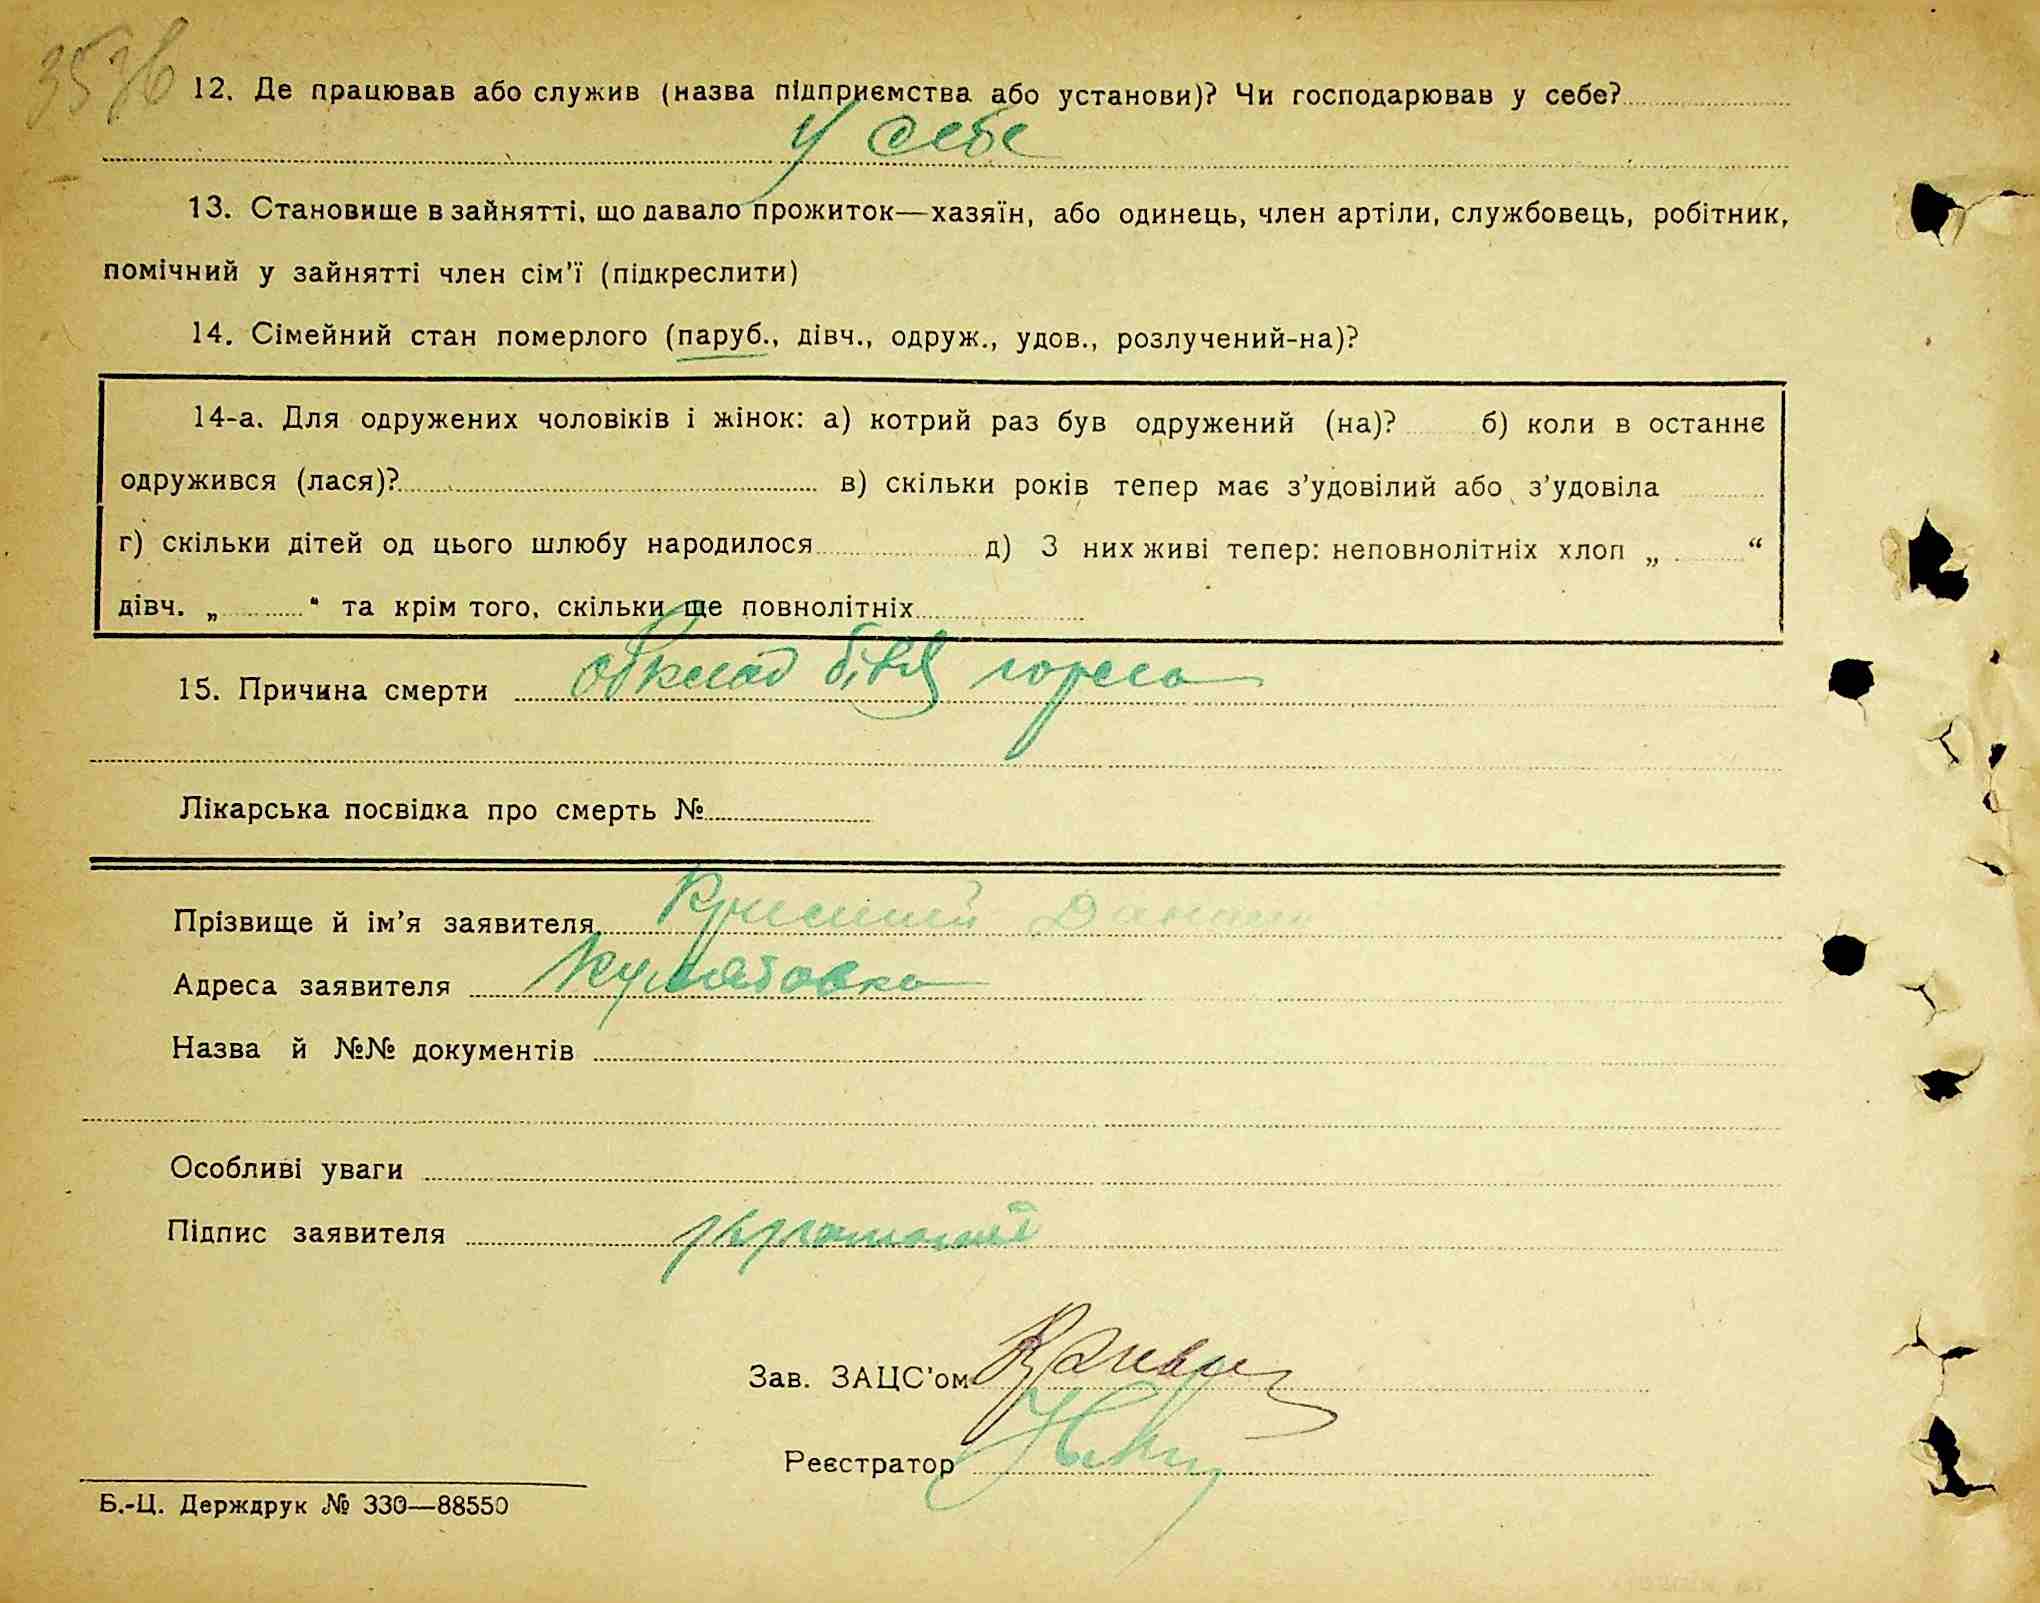 12. Де працював або служив (назва підприємства або установи)? Чи господарював у себе?
у себе
13. Становище в зайнятті, що давало прожиток—хазяїн, або одинець, член артіли, службовець, робітник,
помічний у зайнятті член сім'ї (підкреслити)
14. Сімейний стан померлого (паруб., дівч., одруж., удов., розлучений-на)?
14-а. Для одружених чоловіків і жінок: а) котрий раз був одружений (на)? б) коли в останнє
одружився (лася)? в) скільки років тепер має з'удовілий або з'удовіла
г) скільки дітей од цього шлюбу народилося д) З них живі тепер: неповнолітніх хлоп „ “
дівч. „ “ та крім того, скільки ще повнолітніх
15. Причина смерти обклад біля горла
Лікарська посвідка про смерть №
Прізвище й ім'я заявителя Данило
Адреса заявителя
Назва й №№ документів
Особливі уваги
Підпис заявителя
Зав. ЗАЦС'ом
Реєстратор
Б.-Ц. Держдрук № 330—88550